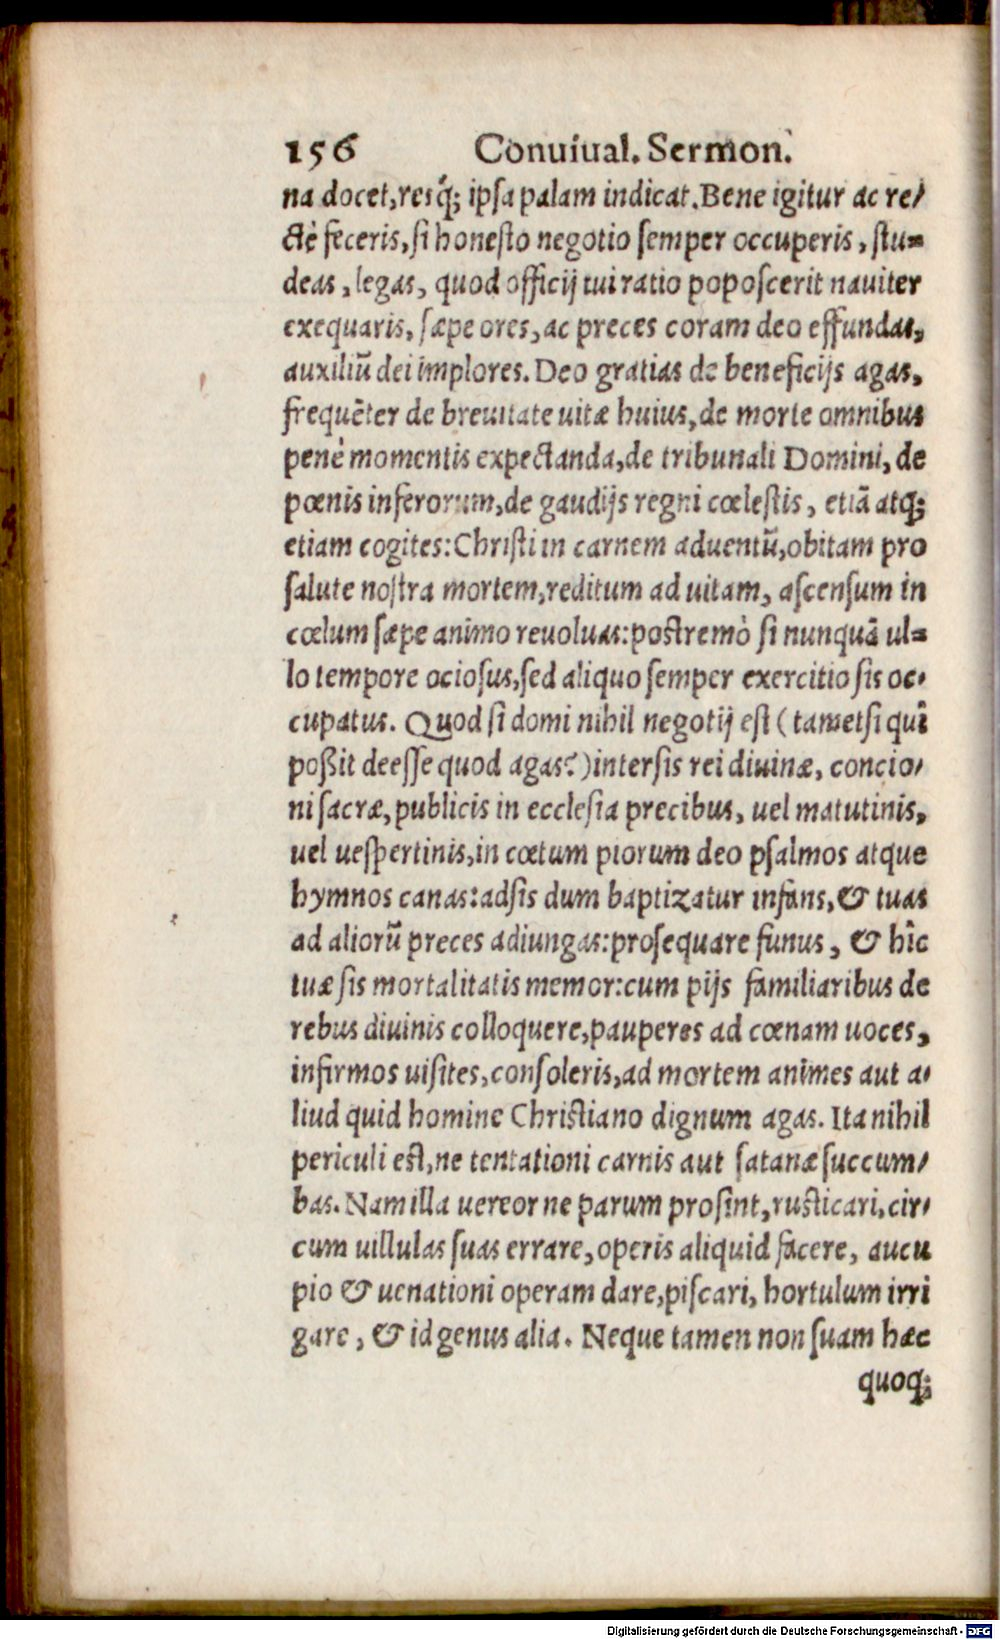 156 Conuiual. Sermon.
na docet, resq́; ipsa palam indicat. Bene igitur ac re/
ctè feceris, si honesto negotio semper occuperis, stu=
deas, legas, quod officij tui ratio poposcerit nauiter
exequaris, sæpe ores, ac preces coram deo effundas,
auxiliũ dei implores. Deo gratias de beneficijs agas,
frequẽter de breuitate uitæ huius, de morte omnibus
penè momentis expectanda, de tribunali Domini, de
pœnis inferorum, de gaudijs regni cœlestis, etiã atq;
etiam cogites: Christi in carnem aduentũ, obitam pro
salute nostra mortem, reditum ad uitam, ascensum in
cœlum sæpe animo reuoluas: postremò si nunquã ul=
lo tempore ociosus, sed aliquo semper exercitio sis oc/
cupatus. Quod si domi nihil negotij est (tametsi quî
poßit deesse quod agas?) intersis rei diuinæ, concio/
ni sacræ, publicis in ecclesia precibus, uel matutinis,
uel uespertinis, in cœtum piorum deo psalmos atque
hymnos canas: adsis dum baptizatur infans, & tuas
ad aliorũ preces adiungas: prosequare funus, & hîc
tuæ sis mortalitatis memor: cum pijs familiaribus de
rebus diuinis colloquere, pauperes ad cœnam uoces,
infirmos uisites, consoleris, ad mortem animes aut a/
liud quid homine Christiano dignum agas. Ita nihil
periculi est, ne tentationi carnis aut satanæ succum/
bas. Nam illa uereor ne parum prosint, rusticari, cir/
cum uillulas suas errare, operis aliquid facere, aucu
pio & uenationi operam dare, piscari, hortulum irri
gare, & id genus alia. Neque tamen non suam hæc
quoq;
Digitalisierung gefördert durch die Deutsche Forschungsgemeinschaft - DFG